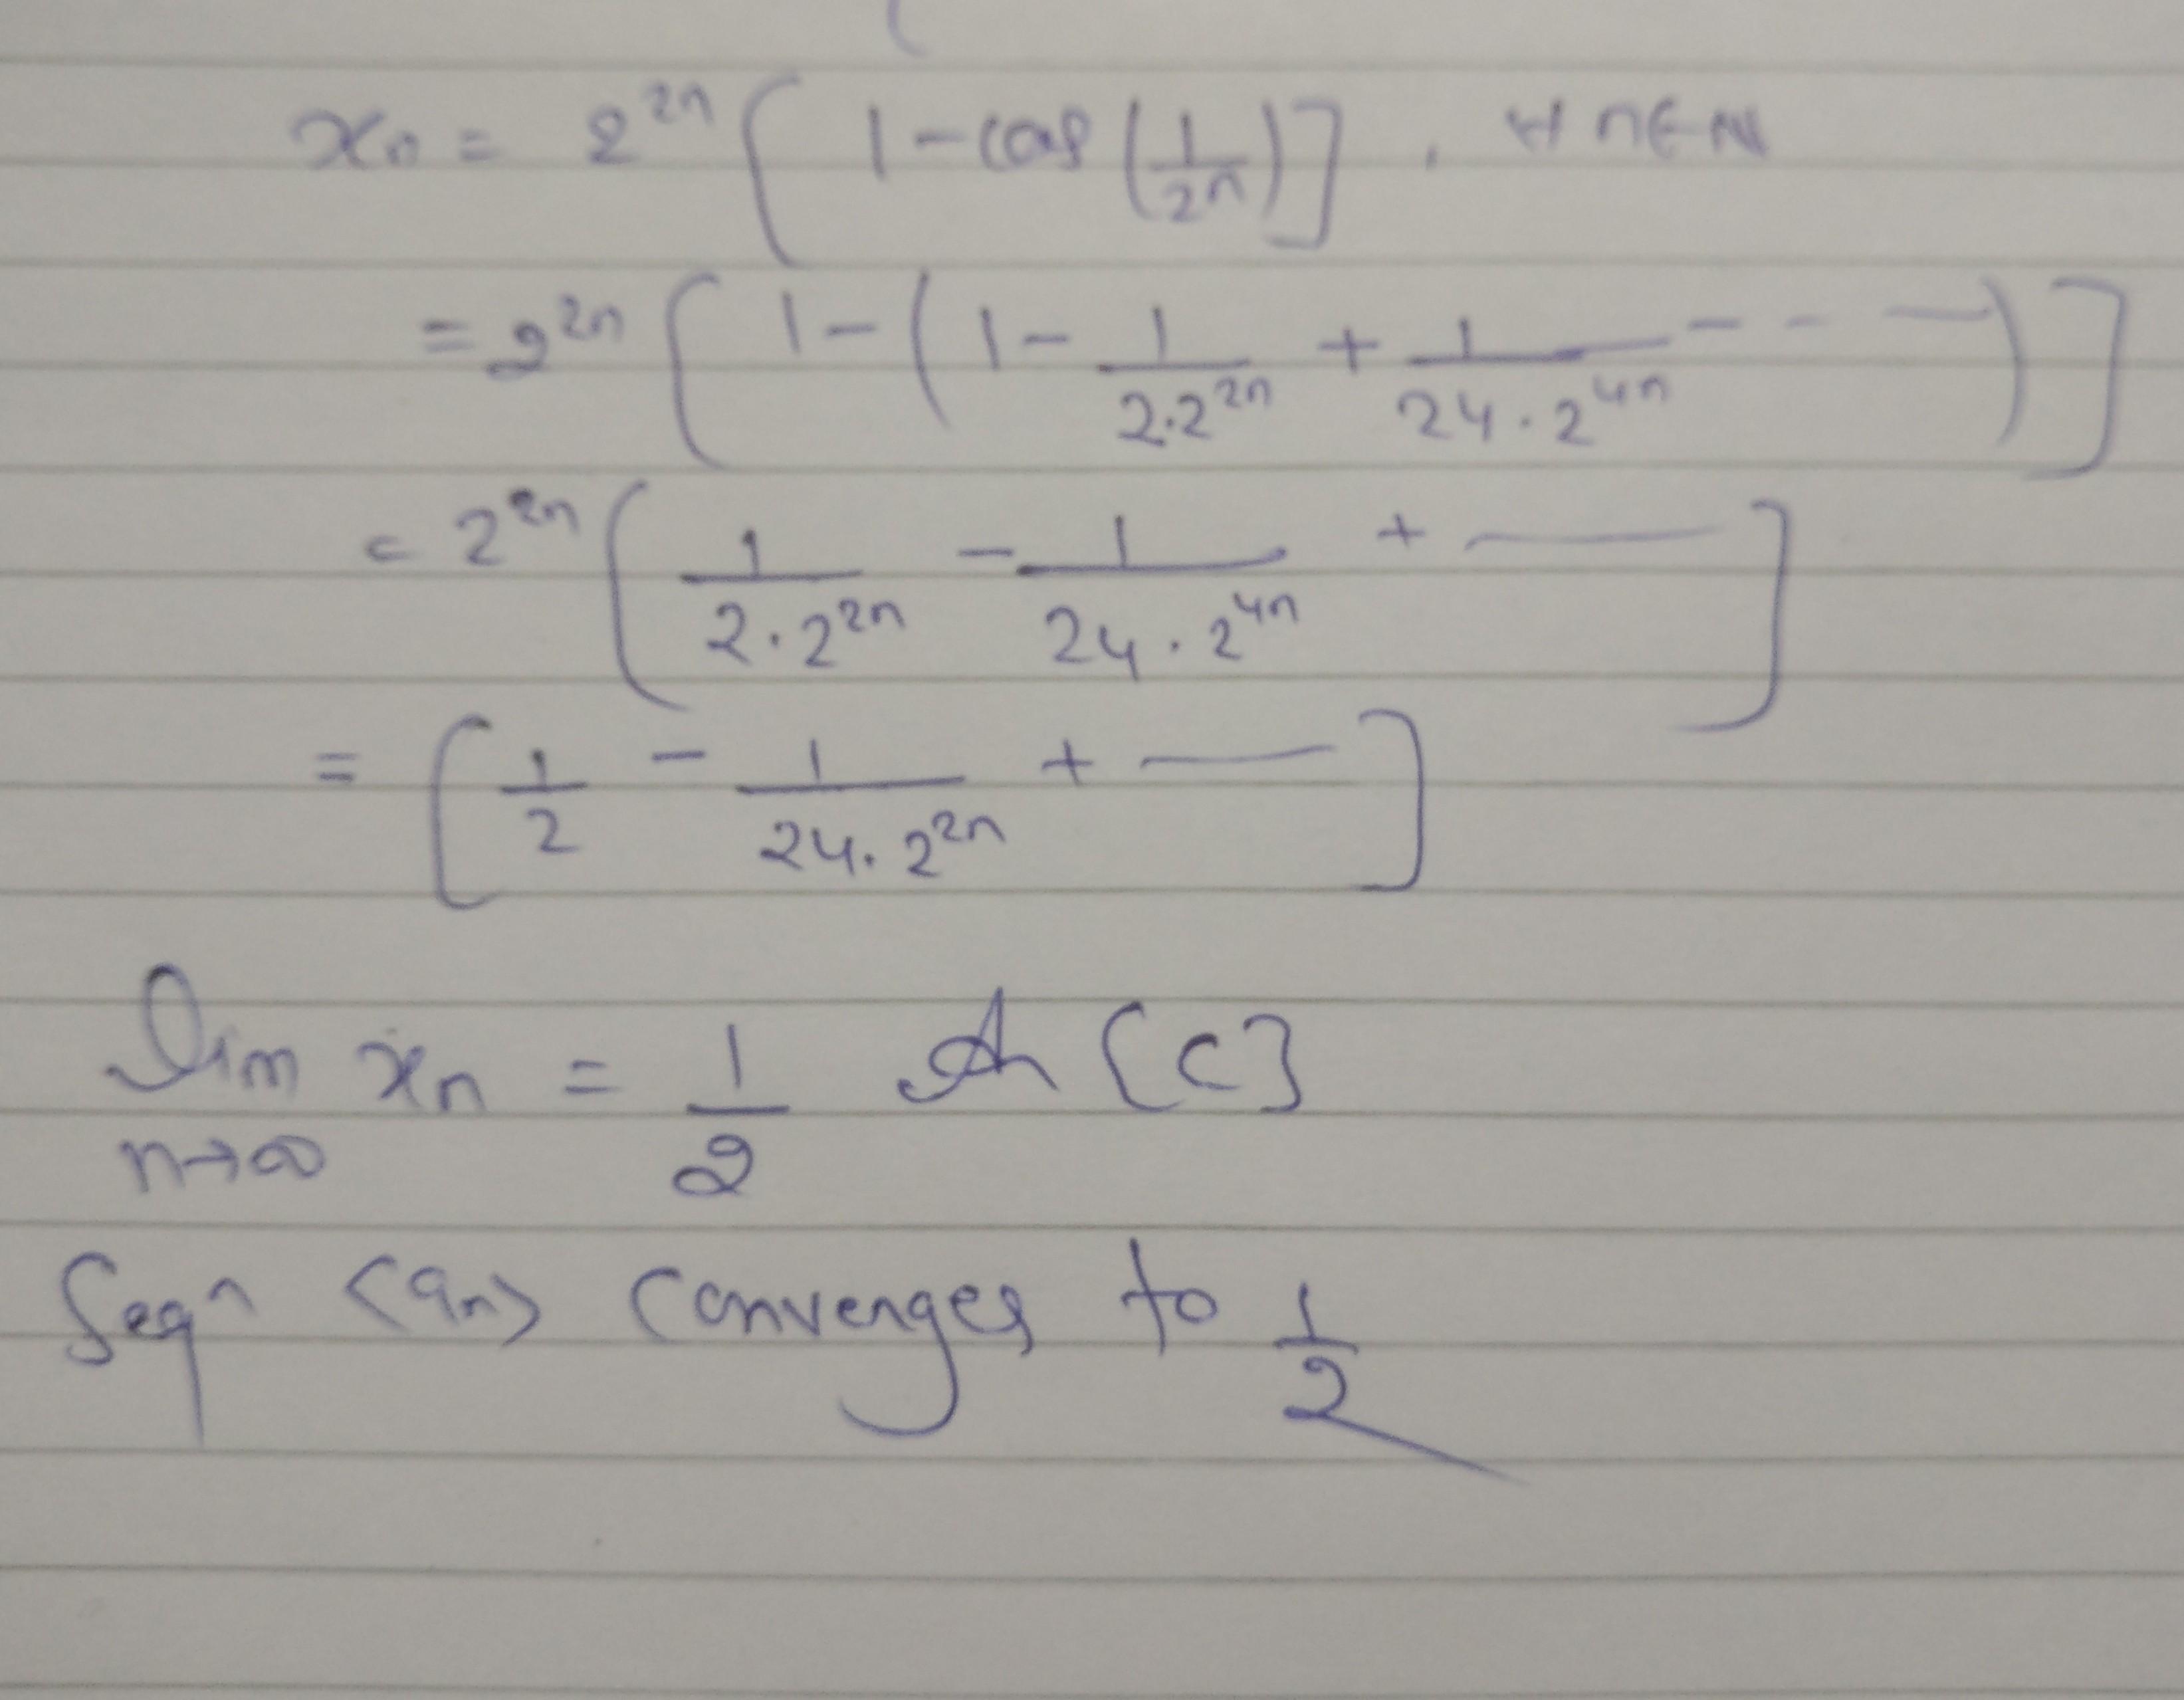 xₙ = 2²ⁿ [ 1 - cos (1/2ⁿ) ] , ∀ n ∈ N
= 2²ⁿ [ 1 - ( 1 - 1/(2·2²ⁿ) + 1/(24·2⁴ⁿ) - - - ) ]
= 2²ⁿ [ 1/(2·2²ⁿ) - 1/(24·2⁴ⁿ) + — ]
= [ 1/2 - 1/(24·2²ⁿ) + — ]
lim n→∞ xₙ = 1/2 A [C]
Seqⁿ <aₙ> converges to 1/2